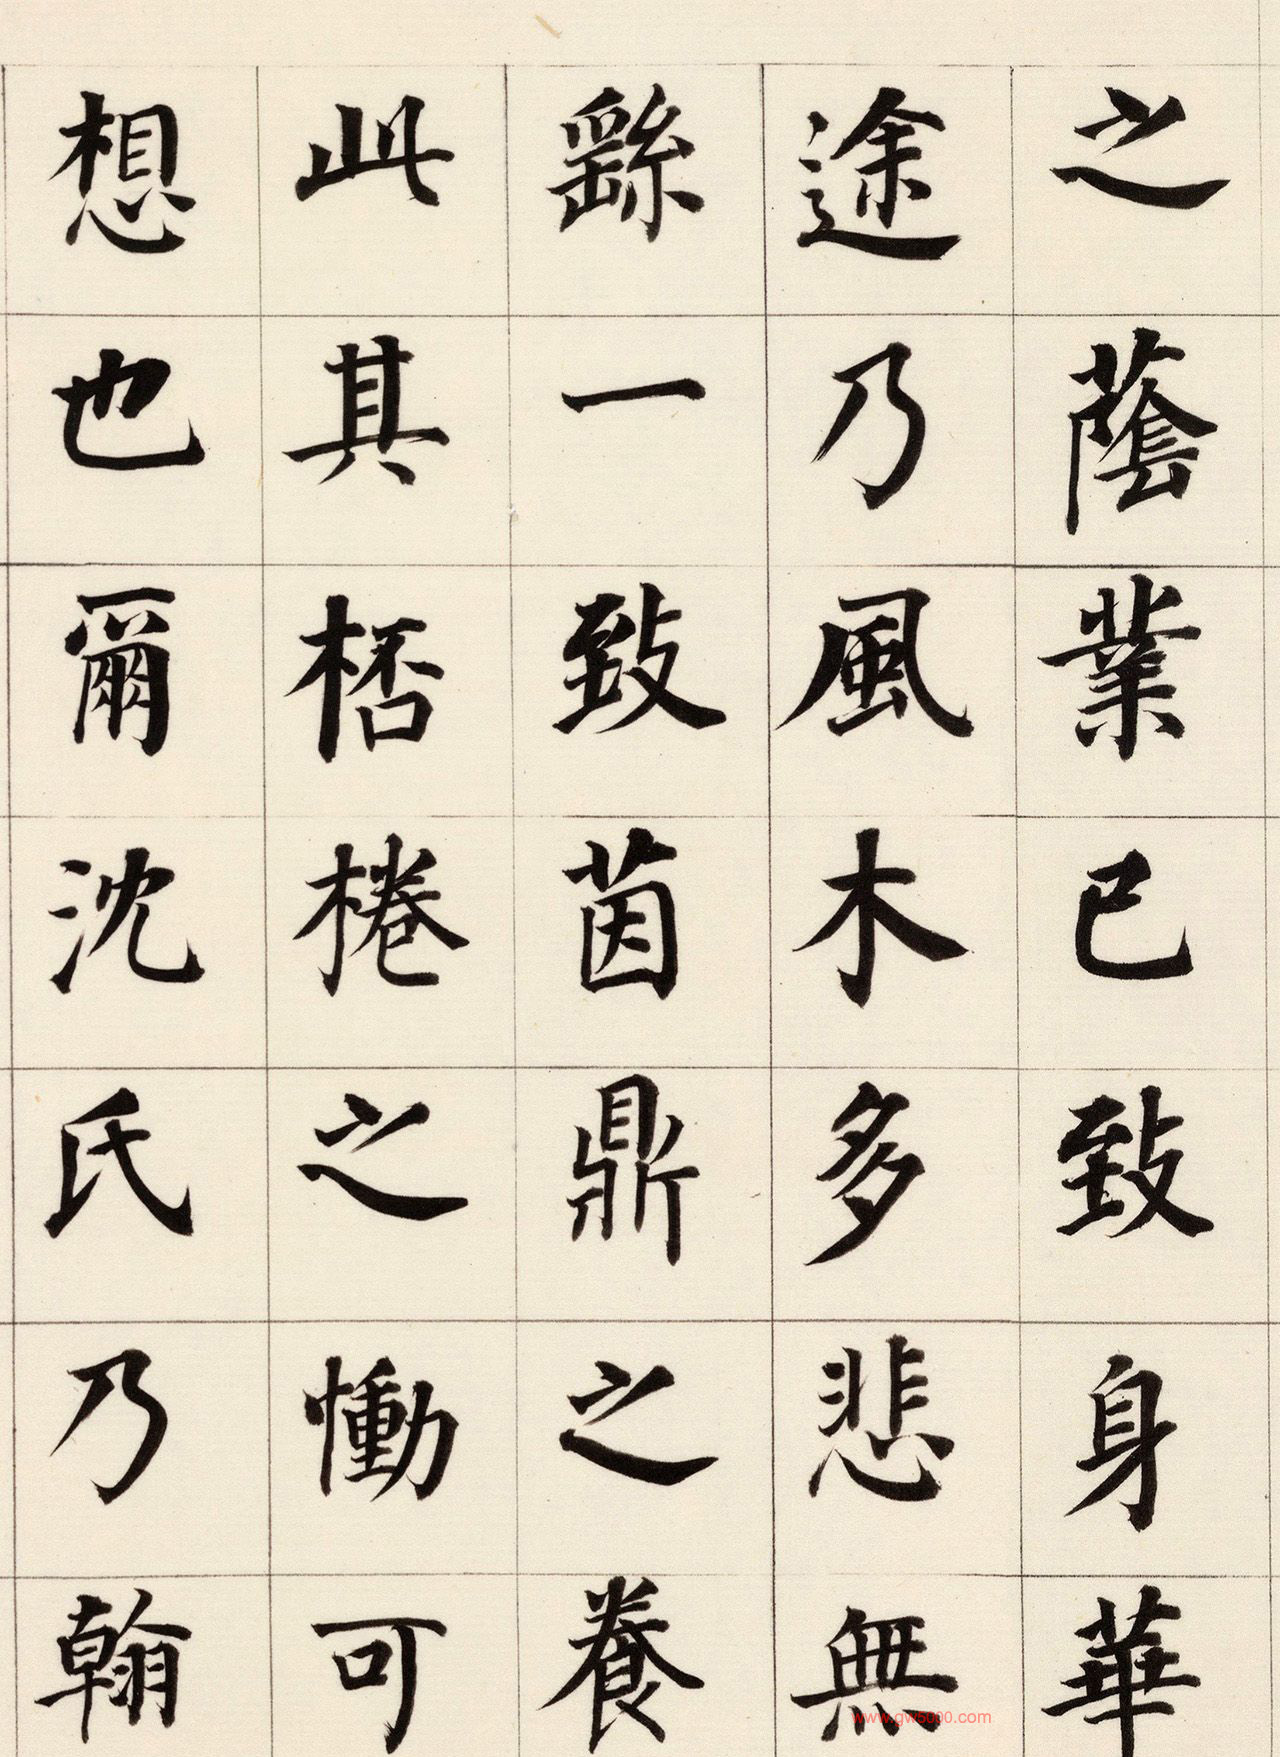 之蔭業已致身華
途乃風木多悲無
繇一致茵鼎之養
此其桮棬之慟可
想也爾沈氏乃翰
www.gw5000.com